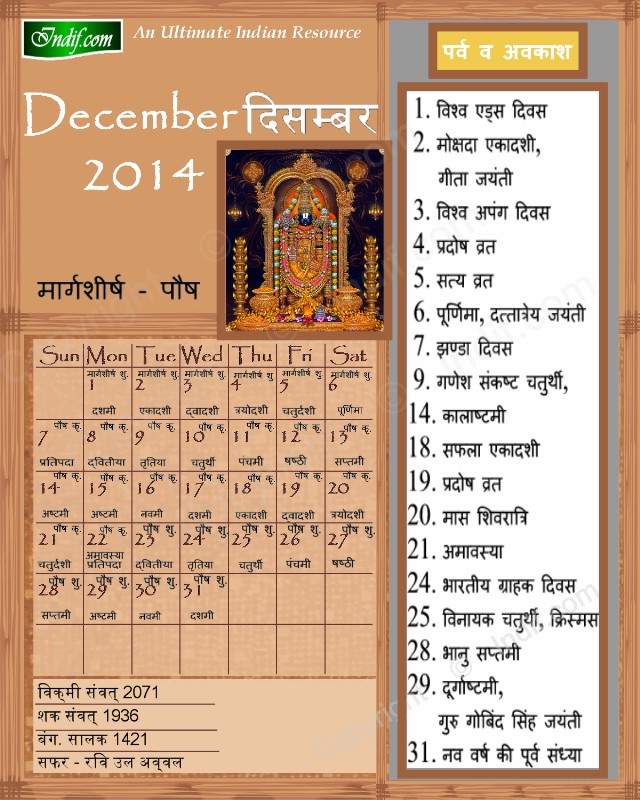 Indif.com
An Ultimate Indian Resource
December दिसम्बर
2014
मार्गशीर्ष - पौष
Sun Mon Tue Wed Thu Fri Sat
मार्गशीर्ष शु. मार्गशीर्ष शु. मार्गशीर्ष शु. मार्गशीर्ष शु मार्गशीर्ष शु. मार्गशीर्ष शु.
1 2 3 4 5 6
दशमी एकादशी द्वादशी त्रयोदशी चतुर्दशी पूर्णिमा
पौष कृ. पौष कृ. पौष कृ. पौष कृ. पौष कृ. पौष कृ. पौष कृ.
7 8 9 10 11 12 13
प्रतिपदा द्वितीया तृतिया चतुर्थी पंचमी षष्ठी सप्तमी
पौष कृ. पौष कृ. पौष कृ. पौष कृ. पौष कृ. पौष कृ. पौष कृ.
14 15 16 17 18 19 20
अष्टमी अष्टमी नवमी दशमी एकादशी द्वादशी त्रयोदशी
पौष कृ. पौष कृ. पौष शु. पौष शु. पौष शु. पौष शु. पौष शु.
21 22 23 24 25 26 27
चतुर्दशी अमावस्या प्रतिपदा द्वितीया तृतिया चतुर्थी पंचमी षष्ठी
पौष शु. पौष शु. पौष शु. पौष शु.
28 29 30 31
सप्तमी अष्टमी नवमी दशमी
विक्रमी संवत् 2071
शक संवत् 1936
बंग. सालक 1421
सफर - रवि उल अव्वल
पर्व व अवकाश
1. विश्व एड्स दिवस
2. मोक्षदा एकादशी,
गीता जयंती
3. विश्व अपंग दिवस
4. प्रदोष व्रत
5. सत्य व्रत
6. पूर्णिमा, दत्तात्रेय जयंती
7. झण्डा दिवस
9. गणेश संकष्ट चतुर्थी,
14. कालाष्टमी
18. सफला एकादशी
19. प्रदोष व्रत
20. मास शिवरात्रि
21. अमावस्या
24. भारतीय ग्राहक दिवस
25. विनायक चतुर्थी, क्रिस्मस
28. भानु सप्तमी
29. दूर्गाष्टमी,
गुरु गोबिंद सिंह जयंती
31. नव वर्ष की पूर्व संध्या
Copyright © Indif.com